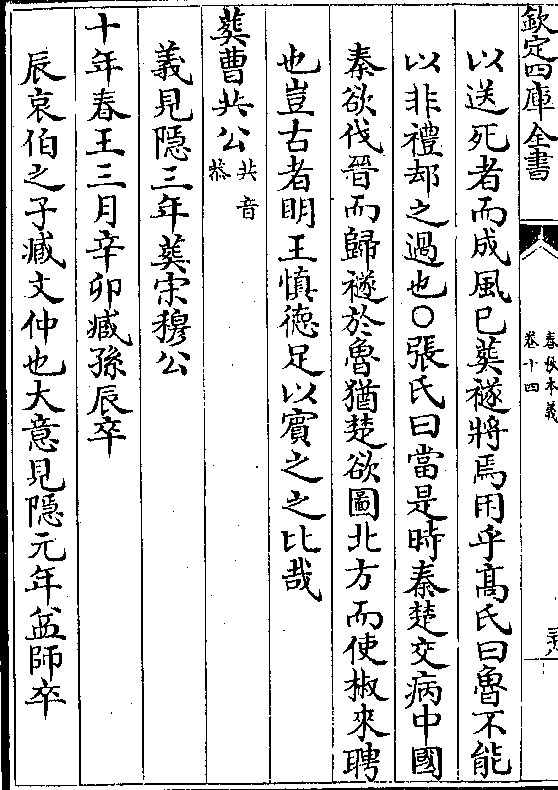 欽定四庫全書
春秋本義
卷十四
以送死者而成風已葬襚將焉用乎髙氏曰魯不能
以非禮却之過也○張氏曰當是時秦楚交病中國
秦欲伐晉而歸襚於魯猶楚欲圖北方而使椒來聘
也豈古者明王慎徳足以賓之之比哉
葬曹共公共音恭
義見隱三年葬宋穆公
十年春王三月辛卯臧孫辰卒
辰哀伯之子臧文仲也大意見隱元年益師卒